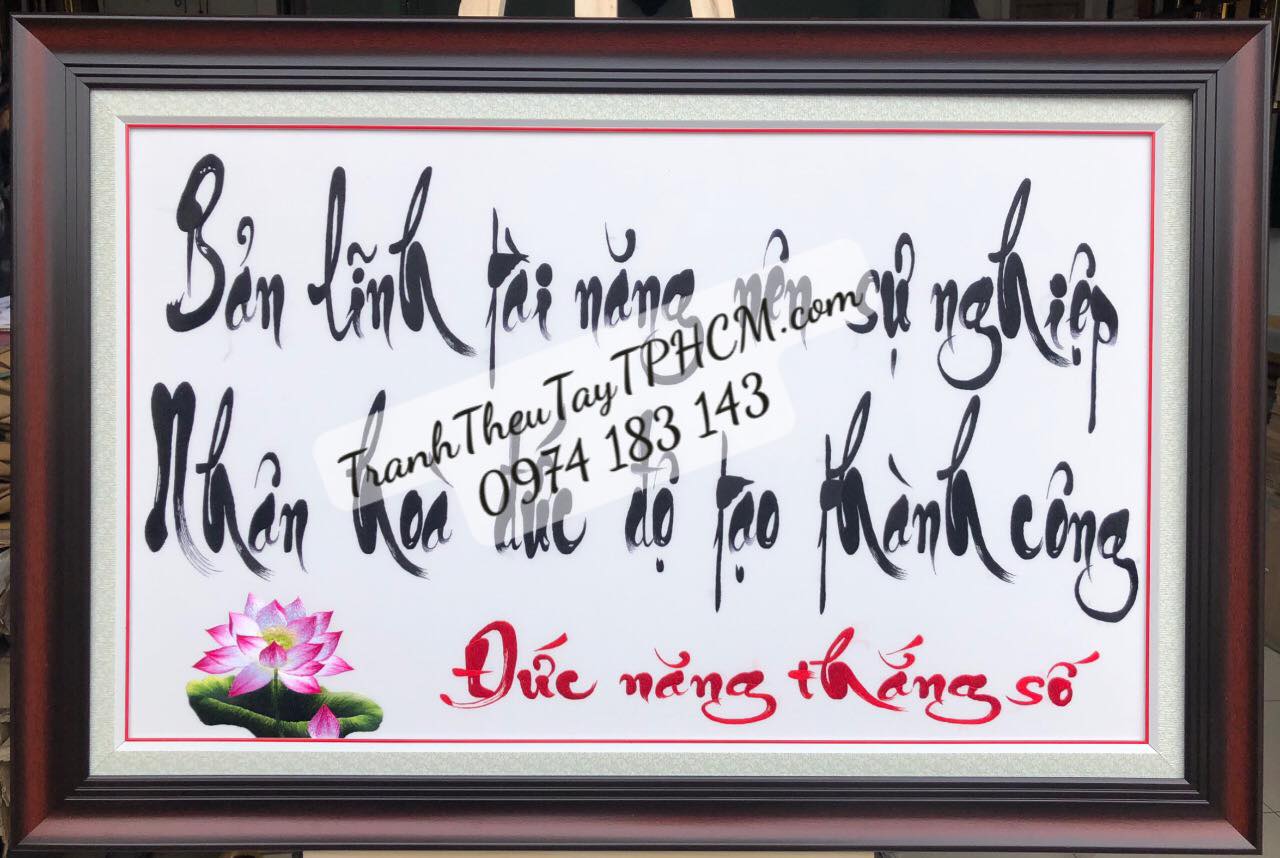 Bản lĩnh tài năng nên sự nghiệp
TranhTheuTayTPHCM.com
0974 183 143
Nhân hoà đức độ tạo thành công
Đức năng thắng số